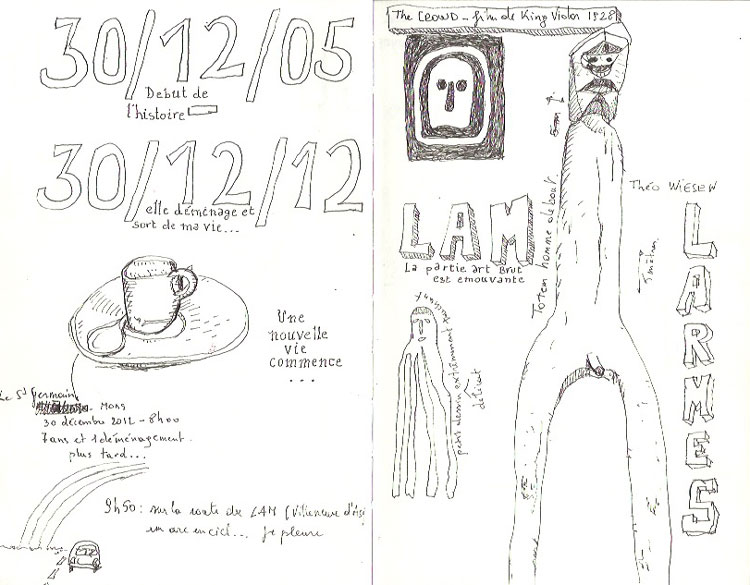 30/12/05
Debut de
l'histoire
30/12/12
elle déménage et
sort de ma vie...
Une
nouvelle
vie
commence
...
St Germain
Mons
30 décembre 2012 - 8h00
7 ans et 1 déménagement
plus tard...
9h50 : sur la route du LAM (Villeneuve d'
un arc en ciel... je pleure
The CROWD - film de King Vidor 1928
LAM
La partie art Brut
est émouvante
Totem homme debout
petit dessin extrêmement
délicat
Théo WIESEN
LARMES